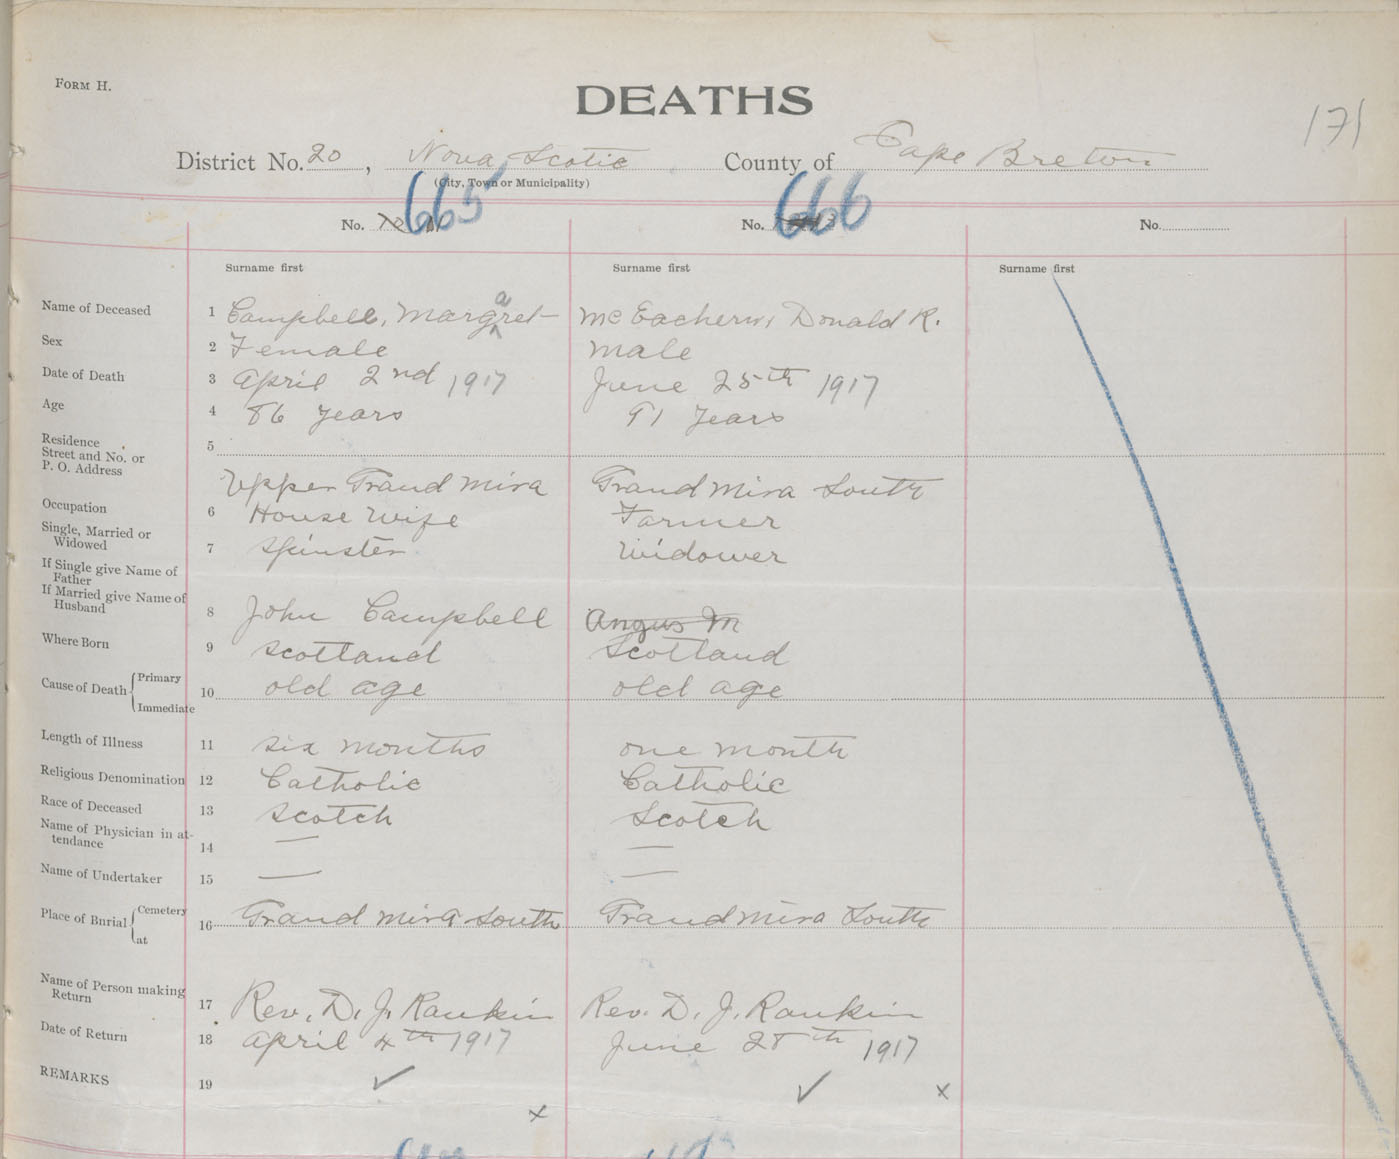 FORM H.
DEATHS
171
District No. 20, Nova Scotia County of Cape Breton
(City, Town or Municipality)
No. 665 No. 666 No.
Surname first Surname first Surname first
Name of Deceased 1 Campbell, Margaret McEachern, Donald R.
Sex 2 Female male
Date of Death 3 April 2nd 1917 June 25th 1917
Age 4 86 years 91 years
Residence 5
Street and No. or
P. O. Address
Upper Grand Mira Grand Mira South
Occupation 6 House Wife Farmer
Single, Married or
Widowed 7 Spinster Widower
If Single give Name of
Father
If Married give Name of
Husband 8 John Campbell Angus M
Where Born 9 Scotland Scotland
Cause of Death Primary
10 old age old age
Immediate
Length of Illness 11 six months one month
Religious Denomination 12 Catholic Catholic
Race of Deceased 13 Scotch Scotch
Name of Physician in at-
tendance 14 — —
Name of Undertaker 15 — —
Place of Burial Cemetery
16 Grand Mira South Grand Mira South
at
Name of Person making
Return 17 Rev. D. J. Rankin Rev. D. J. Rankin
Date of Return 18 April 4th 1917 June 28th 1917
REMARKS 19 ✓ x ✓ x